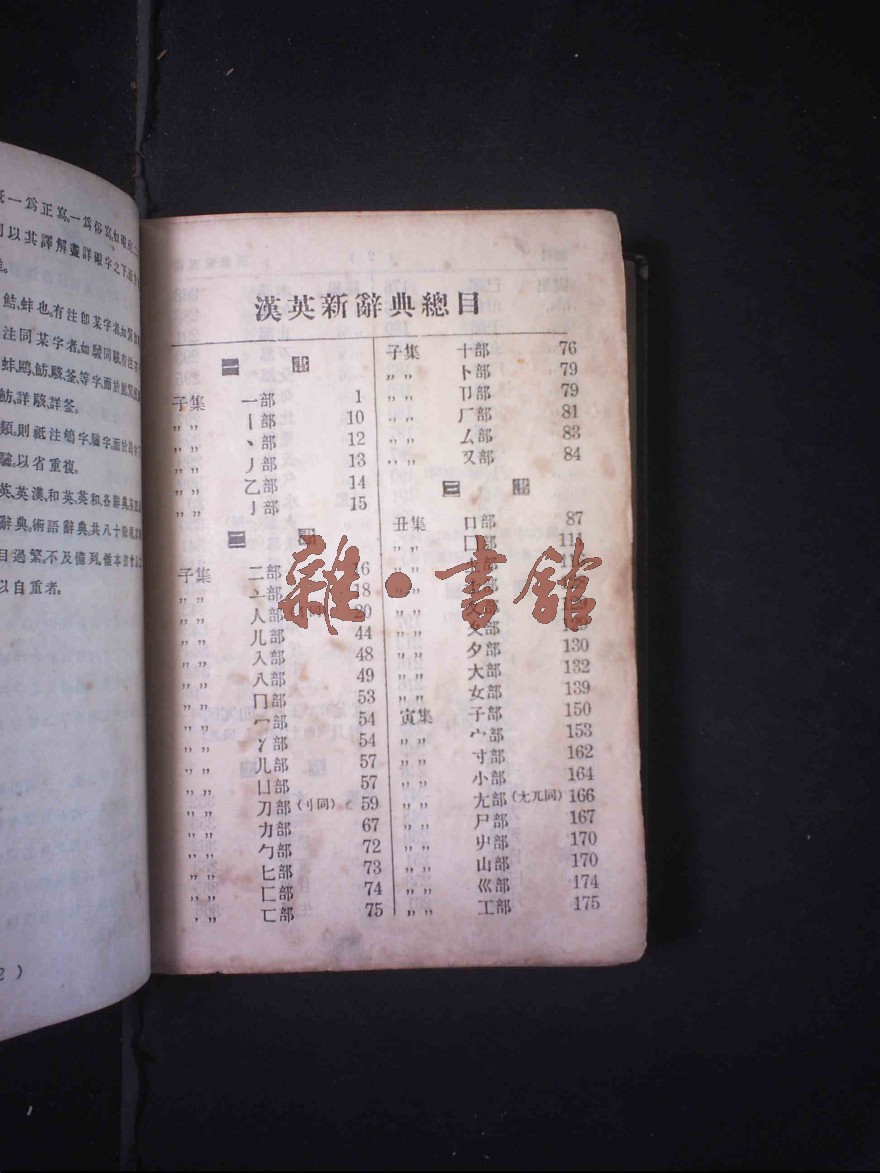 漢英新辭典總目
一 畫
子集 一部 1
〃〃 丨部 10
〃〃 丶部 12
〃〃 丿部 13
〃〃 乙部 14
〃〃 亅部 15
二 畫
子集 二部 16
〃〃 亠部 18
〃〃 人部 20
〃〃 儿部 44
〃〃 入部 48
〃〃 八部 49
〃〃 冂部 53
〃〃 冖部 54
〃〃 冫部 54
〃〃 几部 57
〃〃 凵部 57
〃〃 刀部(刂同) 59
〃〃 力部 67
〃〃 勹部 72
〃〃 匕部 73
〃〃 匚部 74
〃〃 匸部 75
子集 十部 76
〃〃 卜部 79
〃〃 卩部 79
〃〃 厂部 81
〃〃 厶部 83
〃〃 又部 84
三 畫
丑集 口部 87
〃〃 囗部 111
〃〃 夕部 130
〃〃 大部 132
〃〃 女部 139
寅集 子部 150
〃〃 宀部 153
〃〃 寸部 162
〃〃 小部 164
〃〃 尢部(尤兀同) 166
〃〃 尸部 167
〃〃 屮部 170
〃〃 山部 170
〃〃 巛部 174
〃〃 工部 175
雜·書館
一爲正寫,一爲俗寫,如
以其譯解盡詳
鮚,蚌也,有注卽某字者,如
注同某字者,如
蚌,鷗,魴,駭,釜,等字,而於
魴,詳駭,詳釜。
類,則祇注 字, 字,而於
以省重複。
英,英漢,和英,英和,各辭典,
辭典,術語辭典,共八十餘
目過繁,不及備列,惟本書
以自重者。
2 )